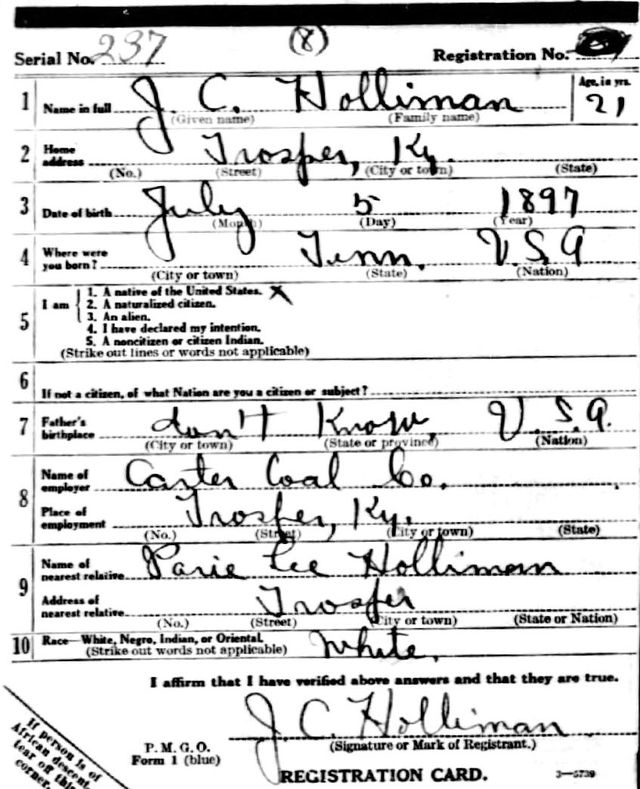 Serial No. 237 (8) Registration No.
1 Name in full J. C. Holliman Age, in yrs. 21
(Given name) (Family name)
2 Home address Trosper, Ky.
(No.) (Street) (City or town) (State)
3 Date of birth July 5 1897
(Month) (Day) (Year)
4 Where were you born? Tenn. U.S.A
(City or town) (State) (Nation)
5 I am 1. A native of the United States. X
2. A naturalized citizen.
3. An alien.
4. I have declared my intention.
5. A noncitizen or citizen Indian.
(Strike out lines or words not applicable)
6 If not a citizen, of what Nation are you a citizen or subject?
7 Father's birthplace don't Know, U.S.A.
(City or town) (State or province) (Nation)
8 Name of employer Carter Coal Co.
Place of employment Trosper, Ky.
(No.) (Street) (City or town) (State)
9 Name of nearest relative Parie Lee Holliman
Address of nearest relative Trosper
(No.) (Street) (City or town) (State or Nation)
10 Race—White, Negro, Indian, or Oriental. White.
(Strike out words not applicable)
I affirm that I have verified above answers and that they are true.
J C Holliman
P. M. G. O.
Form 1 (blue)
(Signature or Mark of Registrant.)
REGISTRATION CARD. 3—5739
If person is of
African descent,
tear off this
corner.